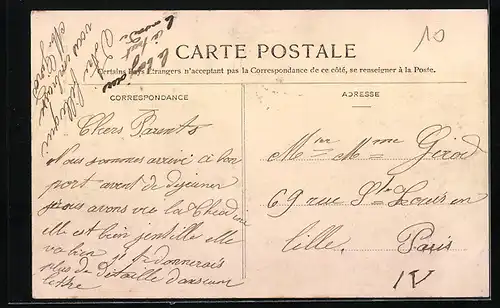 10
CARTE POSTALE
Certains Pays Étrangers n'acceptant pas la Correspondance de ce côté, se renseigner à la Poste.
CORRESPONDANCE
Chers Parents
Nous sommes arrivé à bon
port avent de dejeuner
nous avons vu la
elle est bien jentille elle
va bien je donnerais
plus de detaille dans une
lettre
votre
vous embrasse
ADRESSE
Mr Mme Girod
69 rue St Louis en
lille. Paris
IV